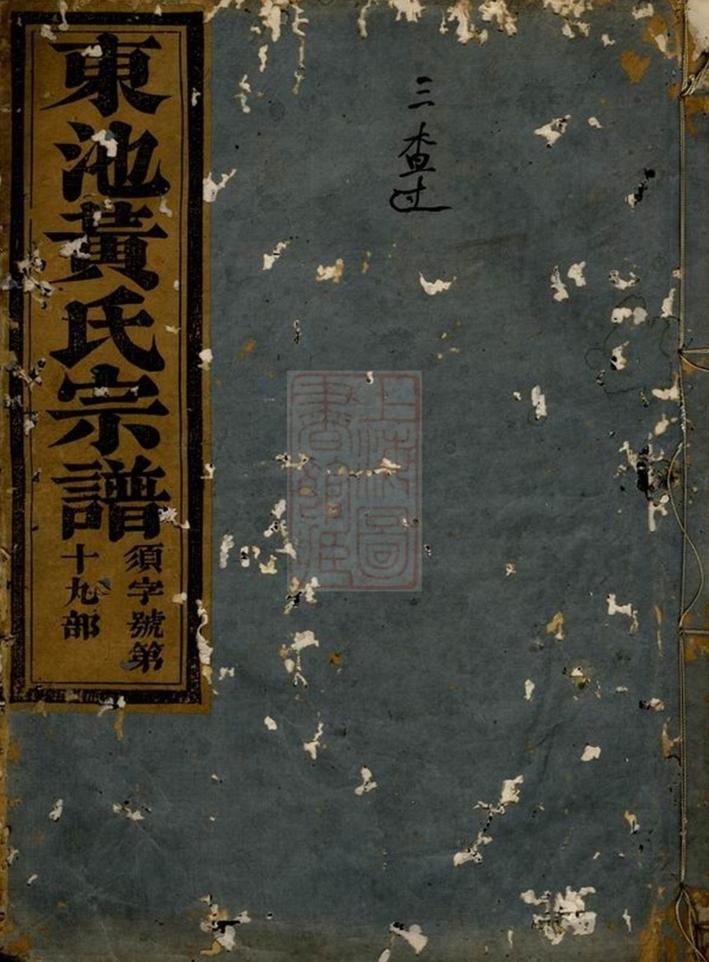 三查过
東池黃氏宗譜
須字號第
十九部
上海圖
書館臧